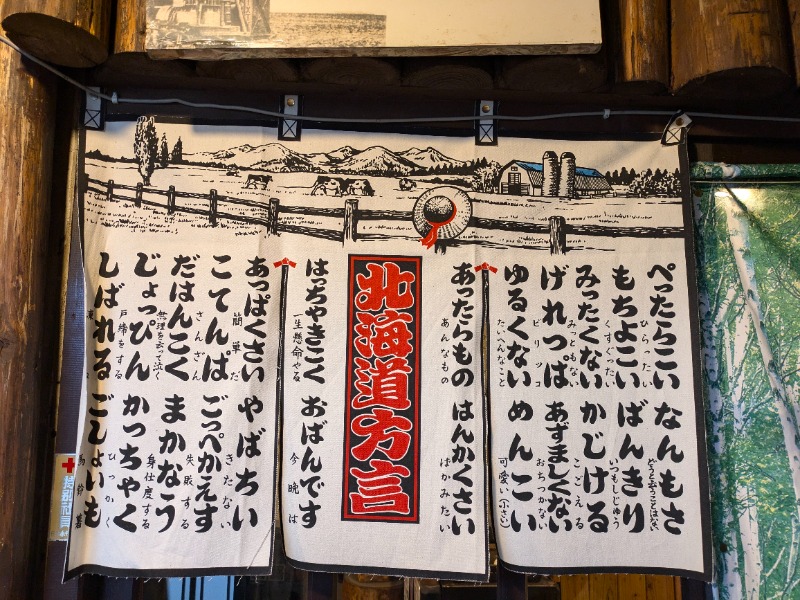 ぺったらこい
ひらったい
なんもさ
どうと云うことはない
もちよこい
くすぐったい
ばんきり
いつもしじゅう
みったくない
みっともない
かじける
こごえる
げれっぱ
ビリッコ
あずましくない
おちつかない
ゆるくない
たいへんなこと
めんこい
可愛い(小さい)
あったらもの
あんなもの
はんかくさい
ばかみたい
北海道方言
はっちゃきこく
一生懸命やる
おばんです
今晩は
あっぱくさい
簡単だ
やばちい
きたない
こてんぱ
さんざん
ごっぺかえす
失敗する
だはんこく
無理を云って泣く
まかなう
身仕度する
じょっぴん
戸締をする
かっちゃく
ひっかく
しばれる
ごしょいも
馬鈴薯